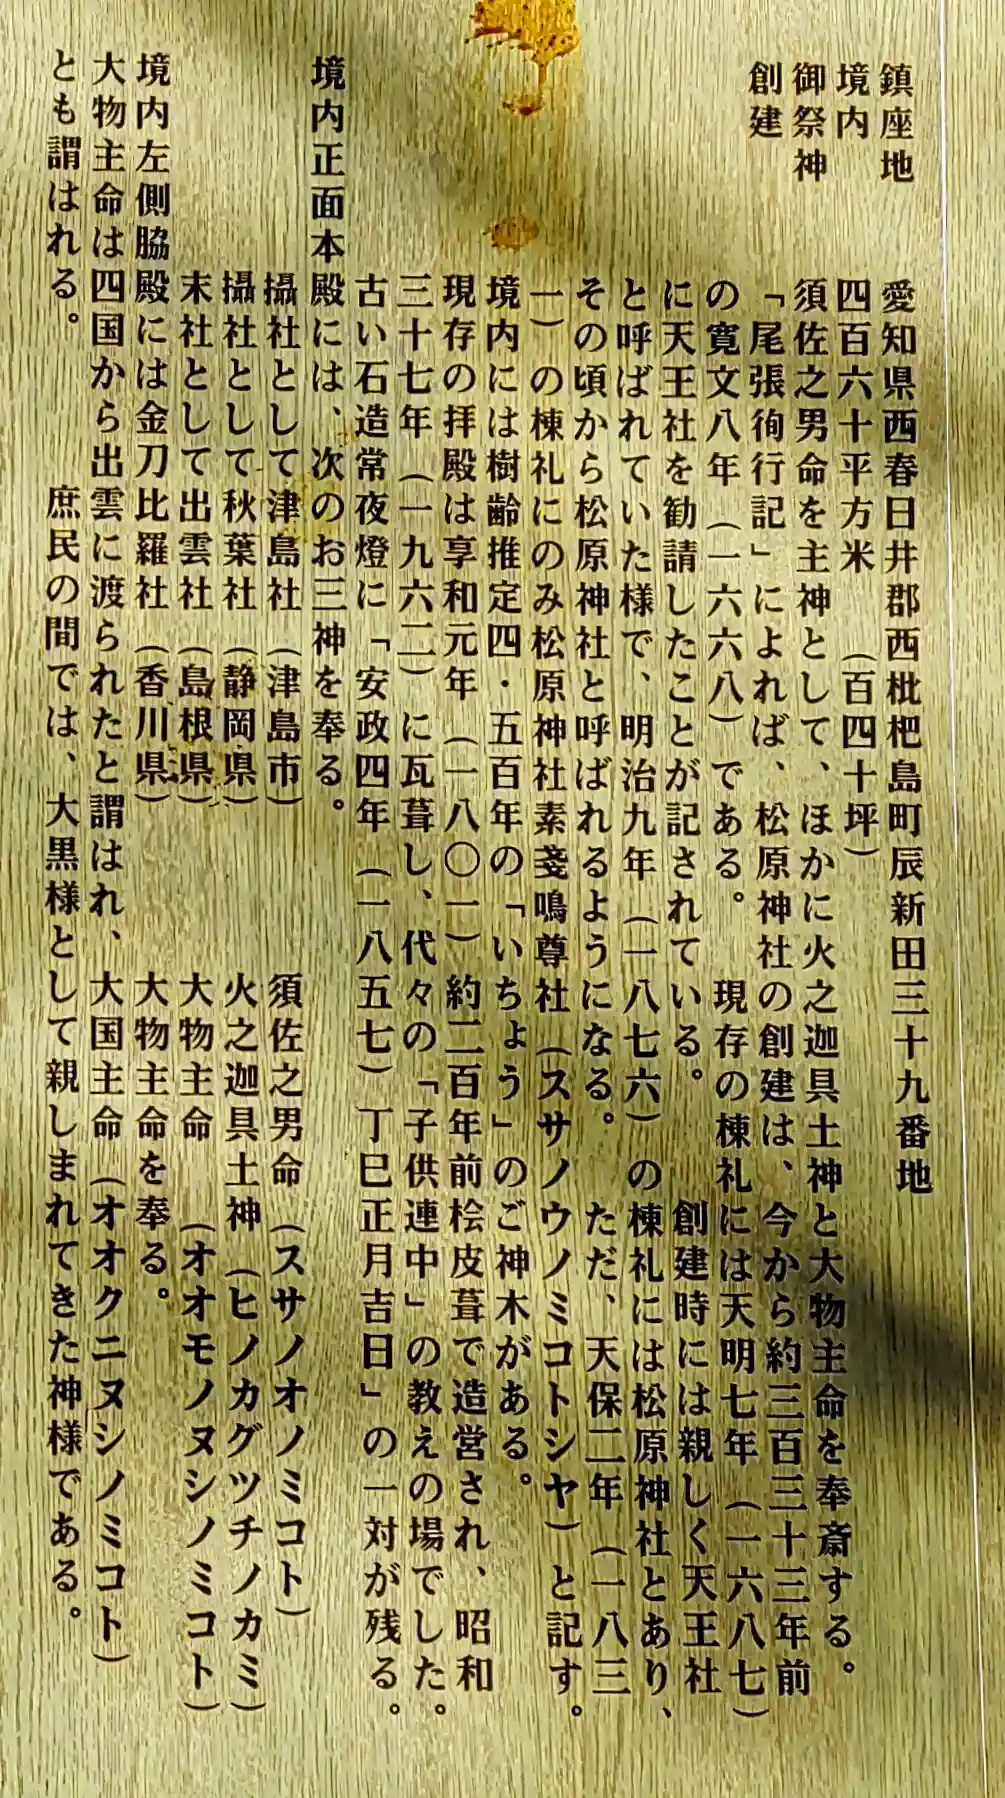 鎮座地　愛知県西春日井郡西枇杷島町辰新田三十九番地
境内　四百六十平方米　（百四十坪）
御祭神　須佐之男命を主神として、ほかに火之迦具土神と大物主命を奉斎する。
創建　「尾張徇行記」によれば、松原神社の創建は、今から約三百三十三年前
の寛文八年（一六六八）である。　現存の棟札には天明七年（一六八七）
に天王社を勧請したことが記されている。　創建時には親しく天王社
と呼ばれていた様で、明治九年（一八七六）の棟札には松原神社とあり、
その頃から松原神社と呼ばれるようになる。　ただ、天保二年（一八三
一）の棟札にのみ松原神社素戔鳴尊社（スサノウノミコトシヤ）と記す。
境内には樹齢推定四・五百年の「いちょう」のご神木がある。
現存の拝殿は享和元年（一八〇一）約二百年前桧皮葺で造営され、昭和
三十七年（一九六二）に瓦葺し、代々の「子供連中」の教えの場でした。
古い石造常夜燈に「安政四年（一八五七）丁巳正月吉日」の一対が残る。
境内正面本殿には、次のお三神を奉る。
攝社として津島社（津島市）　須佐之男命（スサノオノミコト）
攝社として秋葉社（静岡県）　火之迦具土神（ヒノカグツチノカミ）
末社として出雲社（島根県）　大物主命　（オオモノヌシノミコト）
境内左側脇殿には金刀比羅社（香川県）　大物主命を奉る。
大物主命は四国から出雲に渡られたと謂はれ、大国主命（オオクニヌシノミコト）
とも謂はれる。　庶民の間では、大黒様として親しまれてきた神様である。